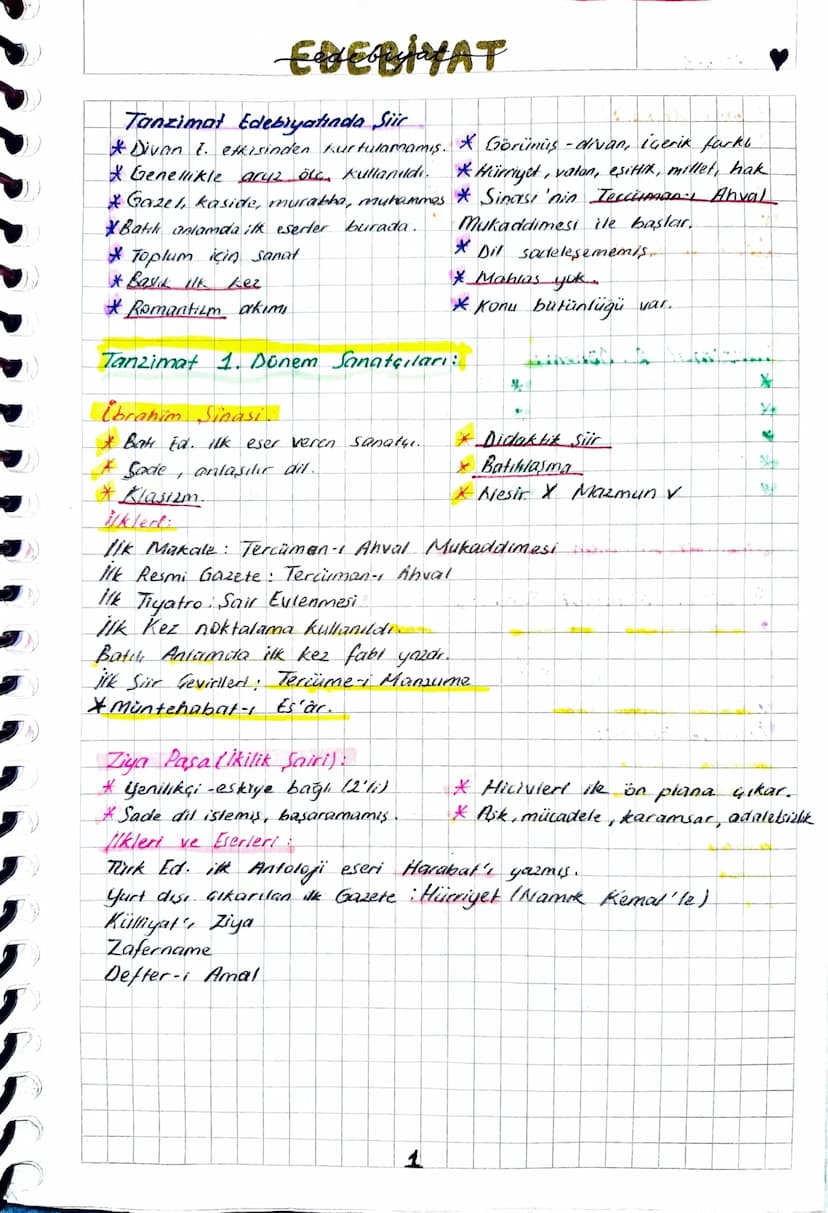 EDEBİYAT
edebiyat
Tanzimat Edebiyatında Şiir
* Divan E. etkisinden kurtulamamış.
* Genellikle aruz ölç. kullanıldı.
* Gazel, kaside, murabba, muhammes
* Batılı anlamda ilk eserler burada.
* Toplum için sanat
* Başlık ilk kez
* Romantizm akımı
* Görünüş - divan, içerik farklı
* Hürriyet, vatan, eşitlik, millet, hak
* Şinasi'nin Tercüman-ı Ahval
Mukaddimesi ile başlar.
* Dil sadeleşememiş.
* Mahlas yok.
* Konu bütünlüğü var.
Tanzimat 1. Dönem Sanatçıları:
İbrahim Şinasi:
* Batı Ed. ilk eser veren sanatçı.
* Sade, anlaşılır dil.
* Klasizm.
* Didaktik şiir
* Batılılaşma
* Nesir X Mazmun V
İlkleri:
İlk Makale: Tercüman-ı Ahval Mukaddimesi
İlk Resmi Gazete: Tercüman-ı Ahval
İlk Tiyatro: Şair Evlenmesi
İlk Kez noktalama kullanıldı.
Batılı Anlamda ilk kez fabl yazdı.
İlk Şiir Çevirileri: Tercüme-i Manzume
* Müntehabat-ı Eş'âr.
Ziya Paşa (İkilik Şairi):
* Yenilikçi - eskiye bağlı (2'li)
* Sade dil istemiş, başaramamış.
* Hicivleri ile ön plana çıkar.
* Aşk, mücadele, karamsar, adaletsizlik
İlkleri ve Eserleri:
Türk Ed. ilk Antoloji eseri Harabat'ı yazmış.
Yurt dışı çıkarılan ilk Gazete: Hürriyet (Namık Kemal'le)
Külliyat'ı Ziya
Zafername
Defter-i Amal
1